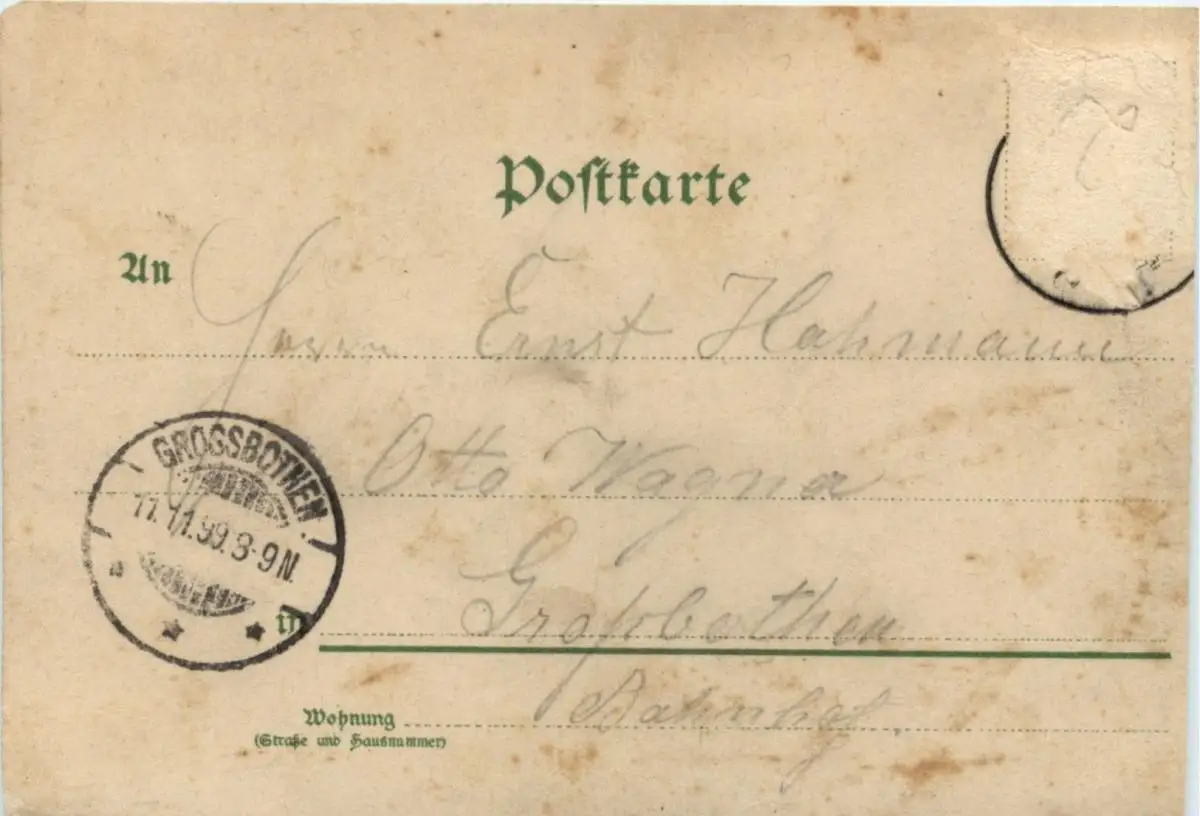 Postkarte
An Herrn Ernst Hahmann
Otto Wagner
GROSSBOTHEN.
11.11.99.8-9N.
in Großbothen
Wohnung
(Straße und Hausnummer)